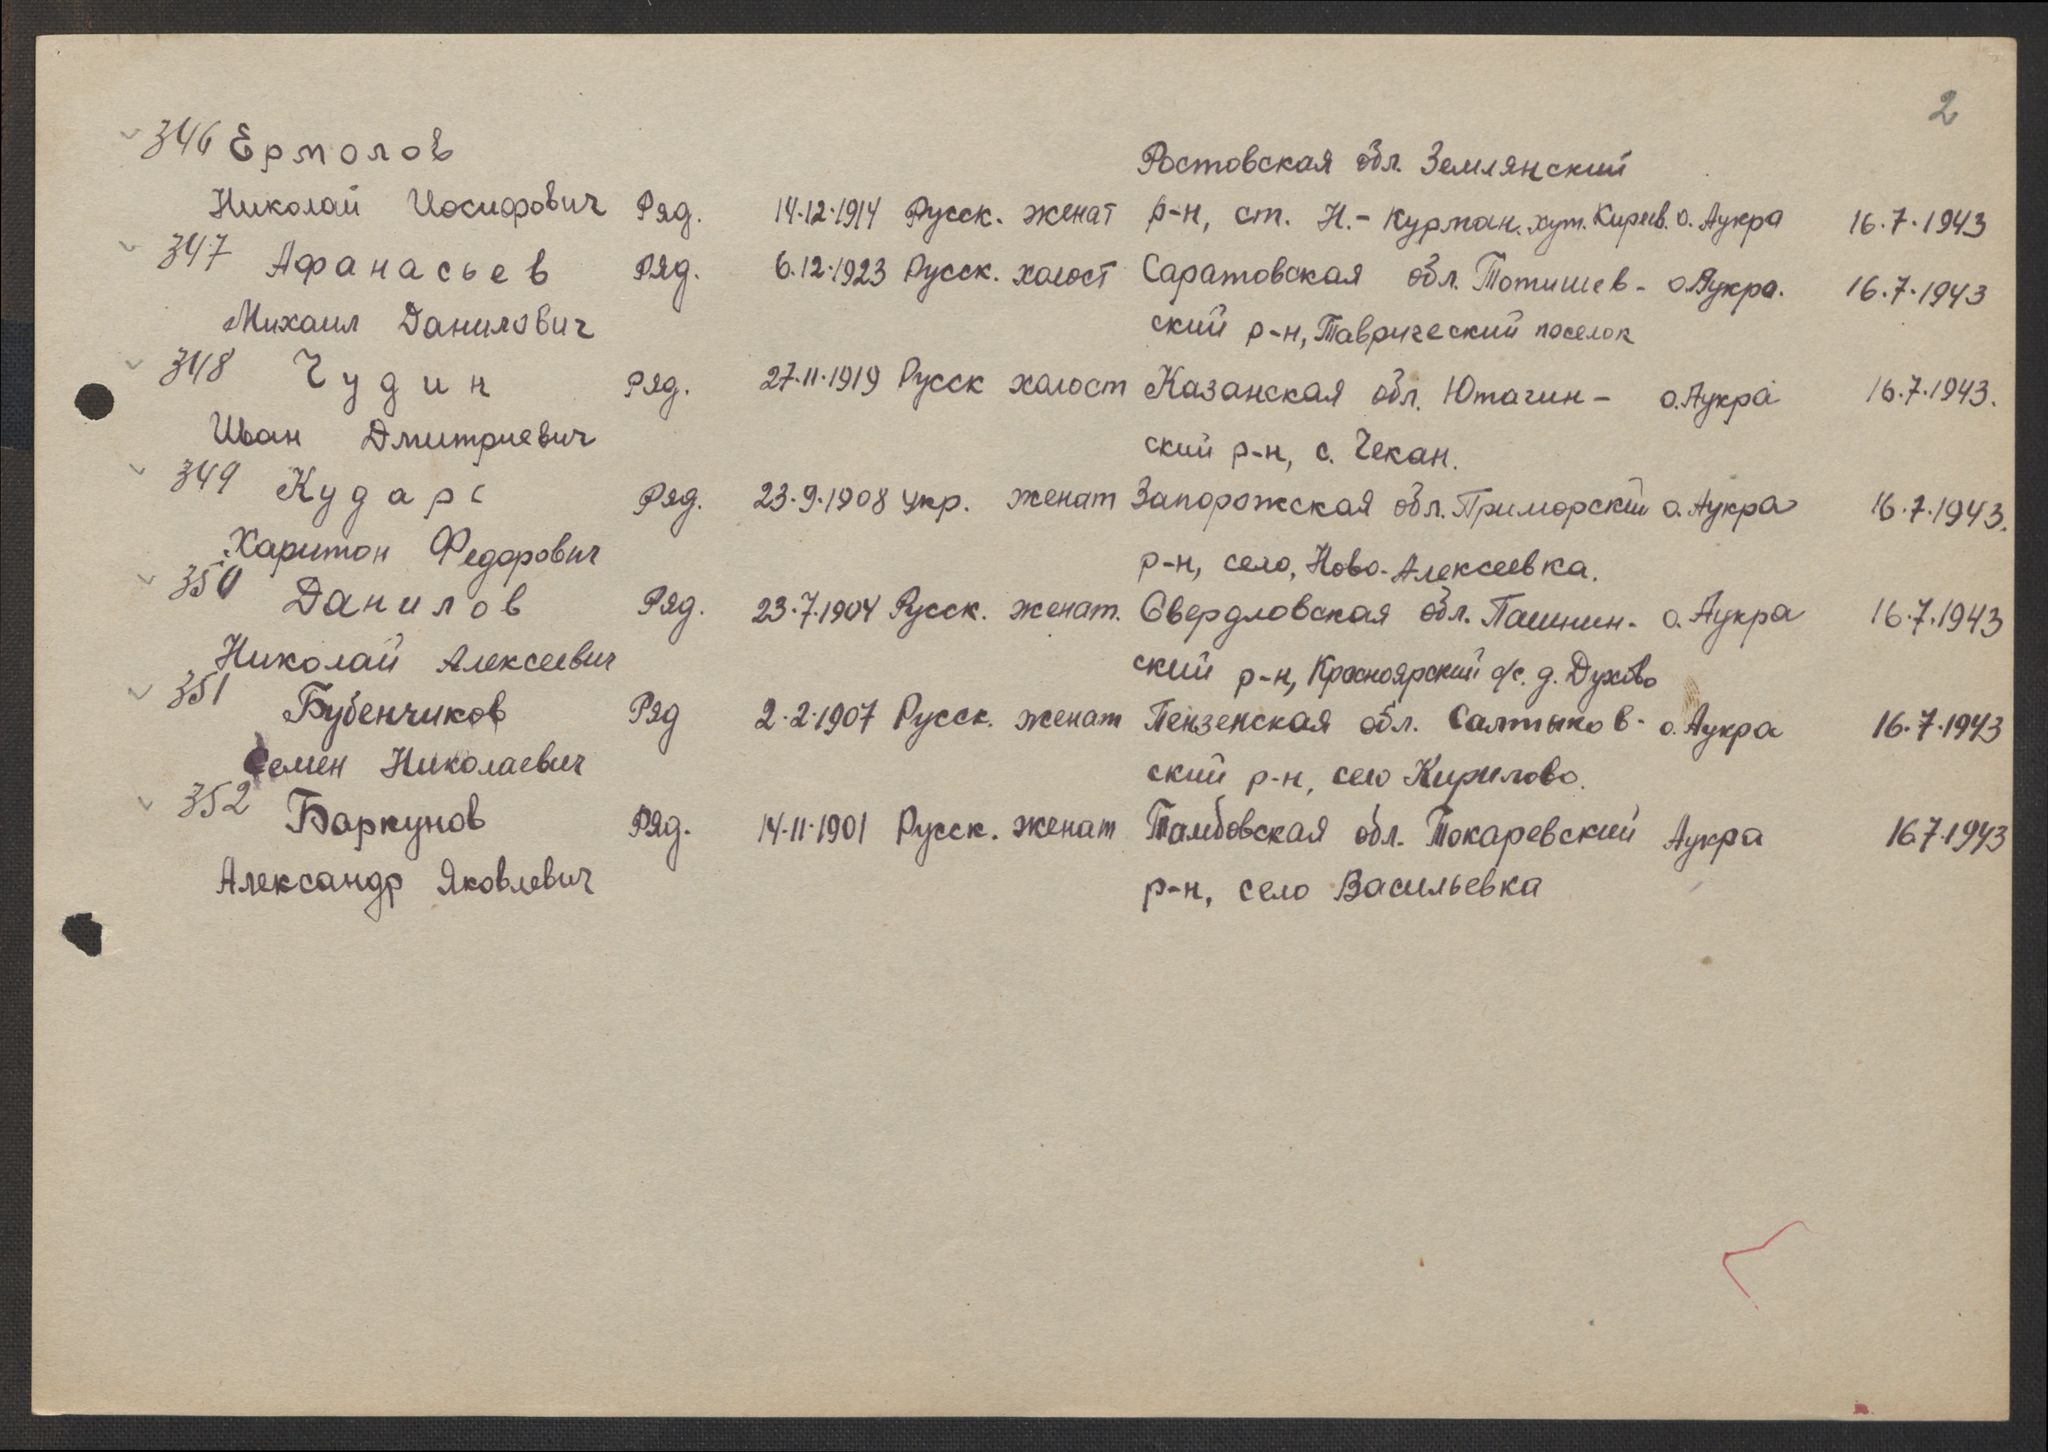 2
346 Ермолов
Ростовская обл. Землянский
Николай Иосифович Ряд. 14.12.1914 Русск. женат р-н, ст. Н.-Курман. хут. Киреев. о. Аукра 16.7.1943
347 Афанасьев Ряд. 6.12.1923 Русск. холост Саратовская обл. Тотишев- о. Аукра. 16.7.1943
Михаил Данилович ский р-н, Таврический поселок
348 Чудин Ряд. 27.11.1919 Русск холост Казанская обл. Ютагин- о. Аукра 16.7.1943.
Иван Дмитриевич ский р-н, с. Чекан.
349 Кудард Ряд. 23.9.1908 укр. женат Запорожская обл. Приморский о. Аукра 16.7.1943.
Харитон Федорович р-н, село, Ново-Алексеевка.
350 Данилов Ряд. 23.7.1904 Русск. женат. Свердловская обл. Пашнин- о. Аукра 16.7.1943
Николай Алексеевич ский р-н, Красноярский с/с. д. Духово
351 Бубенчиков Ряд 2.2.1907 Русск. женат Пензенская обл. Салтыков- о. Аукра 16.7.1943
Семен Николаевич ский р-н, село Кирилово.
352 Баркунов Ряд. 14.11.1901 Русск. женат Тамбовская обл. Токаревский Аукра 16.7.1943
Александр Яковлевич р-н, село Васильевка